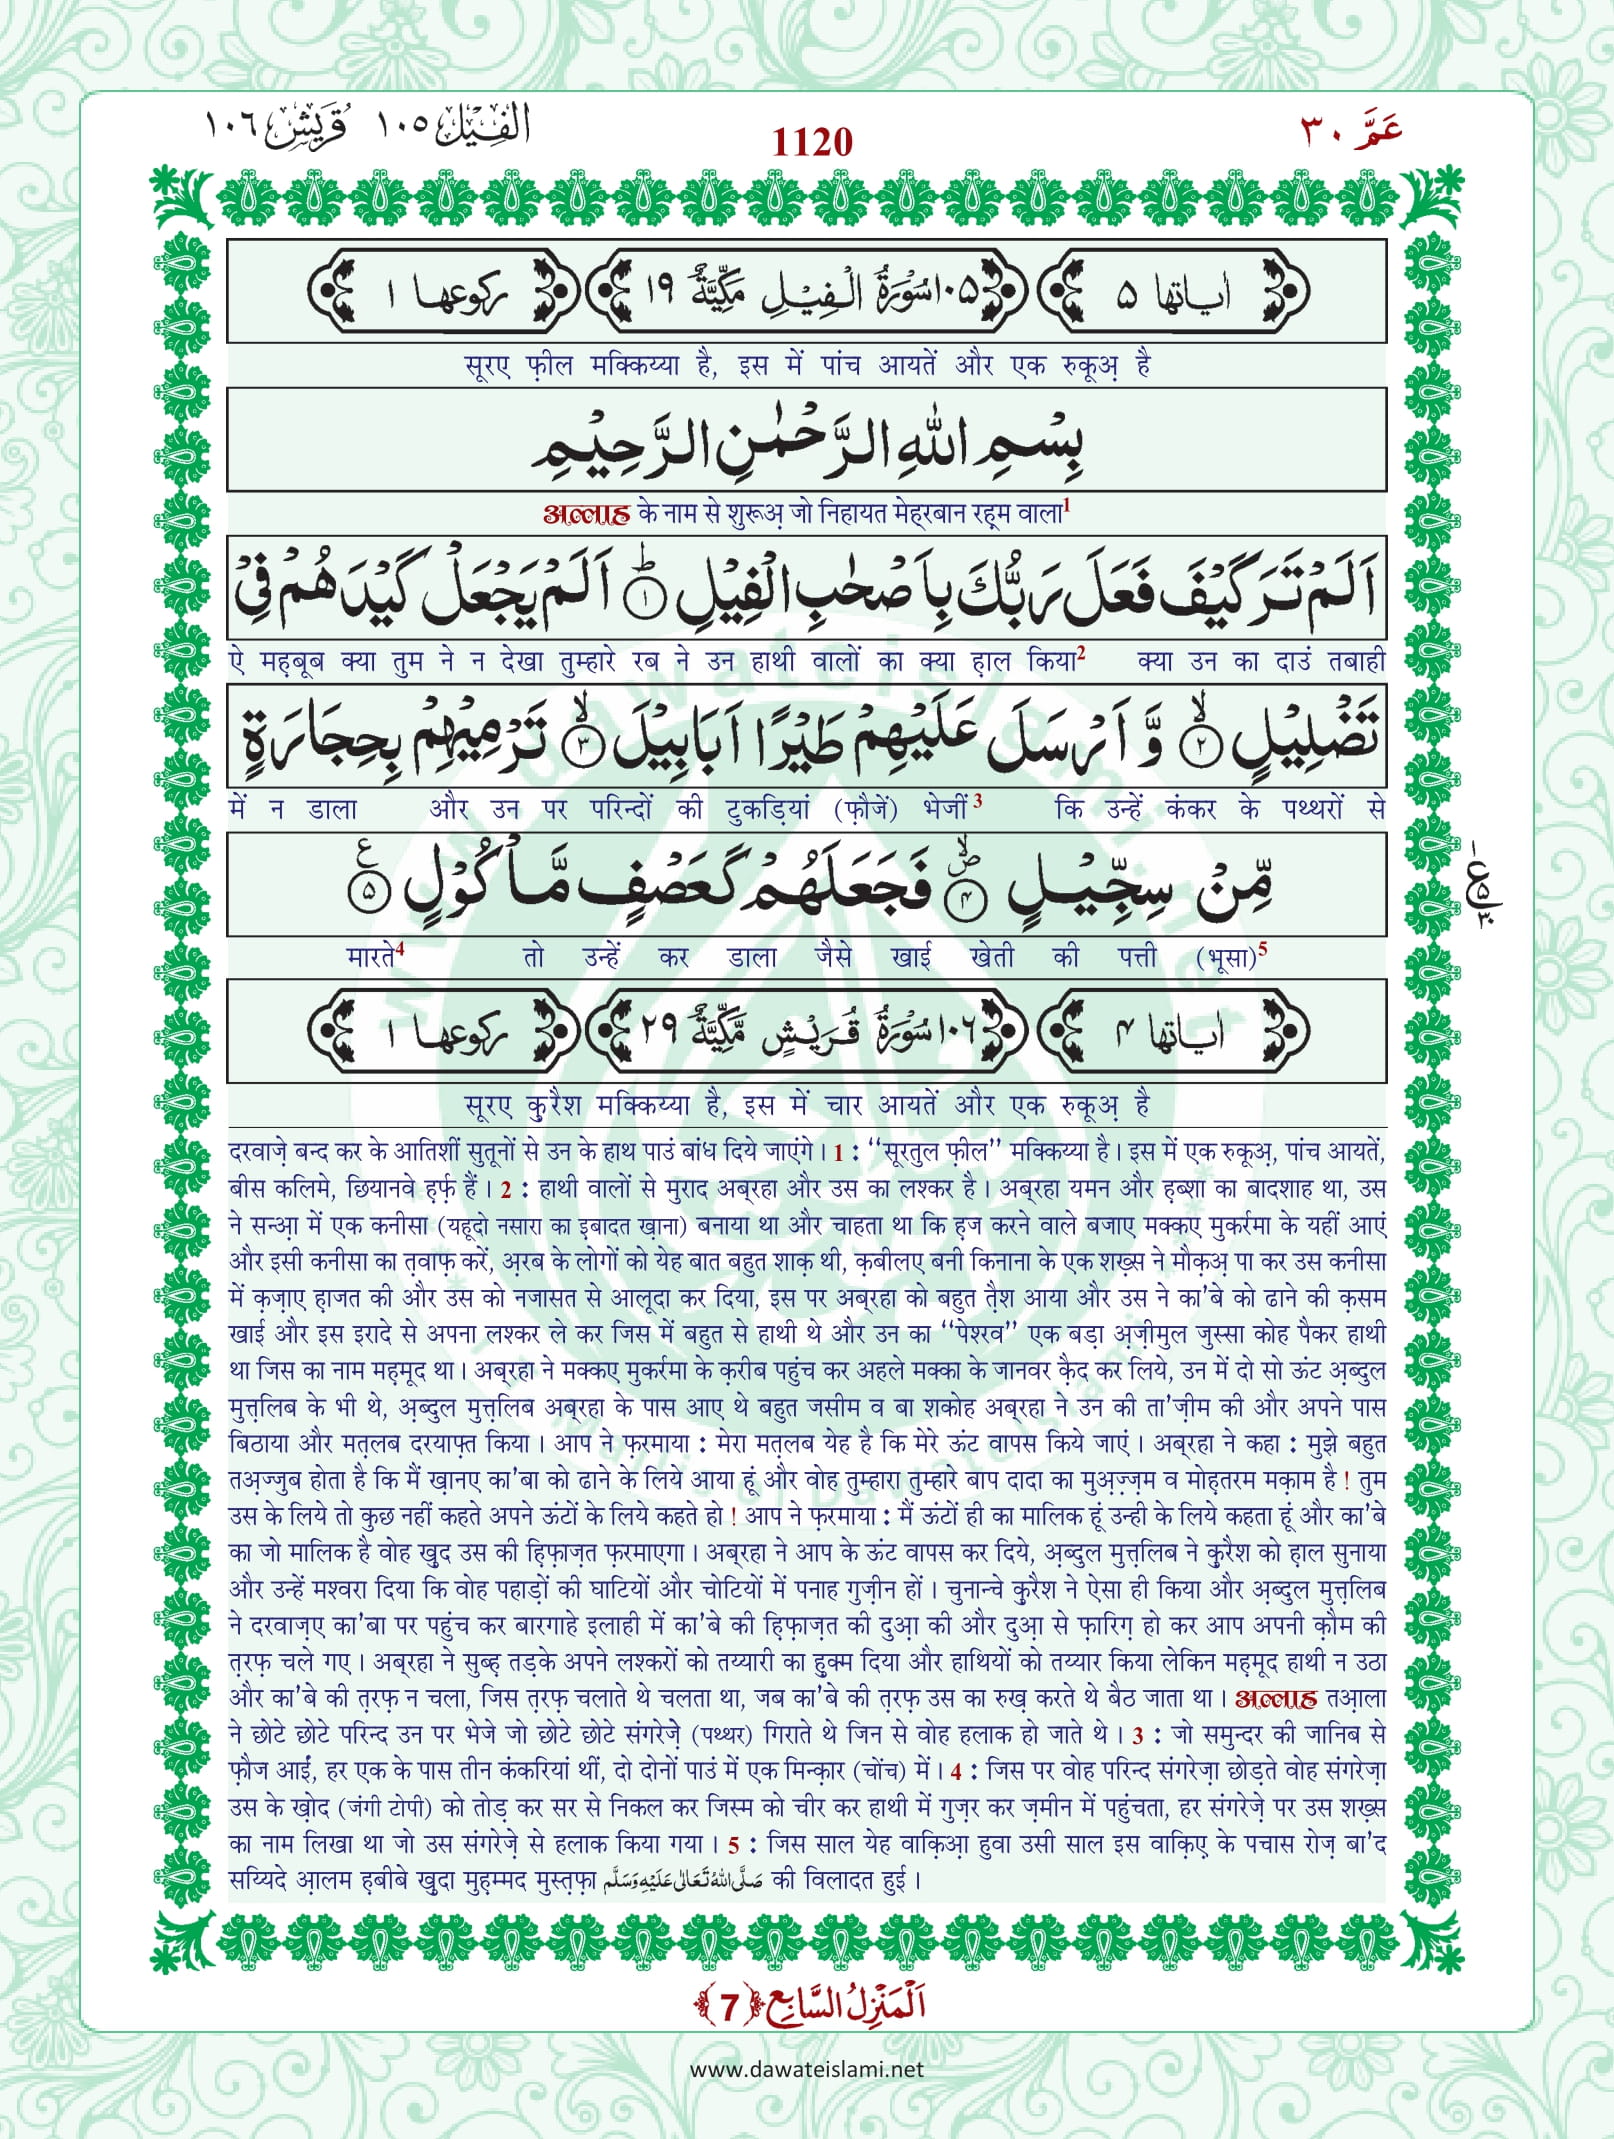 عَمَّ ٣٠
1120
الفِيْل ١٠٥ قُرَيْش ١٠٦
اٰیاتها ٥ ١٠٥ سُوْرَةُ الْفِيْلِ مَكِّيَّةٌ ١٩ رکوعها ١
सूरए फ़ील मक्किय्या है, इस में पांच आयतें और एक रुकूअ़ है
بِسْمِ اللّٰهِ الرَّحْمٰنِ الرَّحِيْمِ
अल्लाह के नाम से शुरूअ़ जो निहायत मेह्‌रबान रह़्म वाला1
اَلَمْ تَرَ كَيْفَ فَعَلَ رَبُّكَ بِاَصْحٰبِ الْفِيْلِ ؕ ١ اَلَمْ يَجْعَلْ كَيْدَهُمْ فِيْ
ऐ मह़बूब क्या तुम ने न देखा तुम्हारे रब ने उन हाथी वालों का क्या ह़ाल किया2 क्या उन का दाउं तबाही
تَضْلِيْلٍ ۙ ٢ وَّ اَرْسَلَ عَلَيْهِمْ طَيْرًا اَبَابِيْلَ ۙ ٣ تَرْمِيْهِمْ بِحِجَارَةٍ
में न डाला और उन पर परिन्दों की टुकड़ियां (फ़ौजें) भेजीं3 कि उन्हें कंकर के पथ्थरों से
مِّنْ سِجِّيْلٍ ۙ ٤ فَجَعَلَهُمْ كَعَصْفٍ مَّاْكُوْلٍ ع ٥
मारते4 तो उन्हें कर डाला जैसे खाई खेती की पत्ती (भूसा)5
اٰیاتها ٤ ١٠٦ سُوْرَةُ قُرَيْشٍ مَّكِّيَّةٌ ٢٩ رکوعها ١
सूरए कुरैश मक्किय्या है, इस में चार आयतें और एक रुकूअ़ है
दरवाज़े बन्द कर के आतिशीं सुतूनों से उन के हाथ पाउं बांध दिये जाएंगे । 1 : ‘‘सूरतुल फ़ील’’ मक्किय्या है । इस में एक रुकूअ़, पांच आयतें,
बीस कलिमे, छियानवे ह़र्फ़ हैं । 2 : हाथी वालों से मुराद अब्‌रहा और उस का लश्कर है । अब्‌रहा यमन और ह़ब्शा का बादशाह था, उस
ने सन्आ़ में एक कनीसा (यहूदो नसारा का इबादत ख़ाना) बनाया था और चाहता था कि ह़ज करने वाले बजाए मक्कए मुकर्रमा के यहीं आएं
और इसी कनीसा का त़वाफ़ करें, अ़रब के लोगों को येह बात बहुत शाक़ थी, क़बीलए बनी किनाना के एक शख़्स ने मौक़अ़ पा कर उस कनीसा
में क़ज़ाए ह़ाजत की और उस को नजासत से आलूदा कर दिया, इस पर अब्‌रहा को बहुत त़ैश आया और उस ने का’बे को ढाने की क़सम
खाई और इस इरादे से अपना लश्कर ले कर जिस में बहुत से हाथी थे और उन का ‘‘पेशरव’’ एक बड़ा अ़ज़ीमुल जुस्सा कोह पैकर हाथी
था जिस का नाम मह़मूद था । अब्‌रहा ने मक्कए मुकर्रमा के क़रीब पहुंच कर अहले मक्का के जानवर क़ैद कर लिये, उन में दो सो ऊंट अ़ब्दुल
मुत्त़लिब के भी थे, अ़ब्दुल मुत्त़लिब अब्‌रहा के पास आए थे बहुत जसीम व बा शकोह अब्‌रहा ने उन की ता’ज़ीम की और अपने पास
बिठाया और मत़लब दरयाफ़्त किया । आप ने फ़रमाया : मेरा मत़लब येह है कि मेरे ऊंट वापस किये जाएं । अब्‌रहा ने कहा : मुझे बहुत
तअ़ज्जुब होता है कि मैं ख़ानए का’बा को ढाने के लिये आया हूं और वोह तुम्हारा तुम्हारे बाप दादा का मुअ़ज़्ज़म व मोह़तरम मक़ाम है ! तुम
उस के लिये तो कुछ नहीं कहते अपने ऊंटों के लिये कहते हो ! आप ने फ़रमाया : मैं ऊंटों ही का मालिक हूं उन्ही के लिये कहता हूं और का’बे
का जो मालिक है वोह ख़ुद उस की ह़िफ़ाज़त फ़रमाएगा । अब्‌रहा ने आप के ऊंट वापस कर दिये, अ़ब्दुल मुत्त़लिब ने क़ुरैश को ह़ाल सुनाया
और उन्हें मश्वरा दिया कि वोह पहाड़ों की घाटियों और चोटियों में पनाह गुज़ीन हों । चुनान्चे क़ुरैश ने ऐसा ही किया और अ़ब्दुल मुत्त़लिब
ने दरवाज़ए का’बा पर पहुंच कर बारगाहे इलाही में का’बे की ह़िफ़ाज़त की दुआ़ की और दुआ़ से फ़ारिग़ हो कर आप अपनी क़ौम की
त़रफ़ चले गए । अब्‌रहा ने सुब्ह़ तड़के अपने लश्करों को तय्यारी का हुक्म दिया और हाथियों को तय्यार किया लेकिन मह़मूद हाथी न उठा
और का’बे की त़रफ़ न चला, जिस त़रफ़ चलाते थे चलता था, जब का’बे की त़रफ़ उस का रुख़ करते थे बैठ जाता था । अल्लाह तआ़ला
ने छोटे छोटे परिन्द उन पर भेजे जो छोटे छोटे संगरेज़े (पथ्थर) गिराते थे जिन से वोह हलाक हो जाते थे । 3 : जो समुन्दर की जानिब से
फ़ौज आईं, हर एक के पास तीन कंकरियां थीं, दो दोनों पाउं में एक मिन्क़ार (चोंच) में । 4 : जिस पर वोह परिन्द संगरेज़ा छोड़ते वोह संगरेज़ा
उस के ख़ोद (जंगी टोपी) को तोड़ कर सर से निकल कर जिस्म को चीर कर हाथी में गुज़र कर ज़मीन में पहुंचता, हर संगरेज़े पर उस शख़्स
का नाम लिखा था जो उस संगरेज़े से हलाक किया गया । 5 : जिस साल येह वाक़िआ़ हुवा उसी साल इस वाक़िए़ के पचास रोज़ बा’द
सय्यिदे आ़लम ह़बीबे ख़ुदा मुह़म्मद मुस्त़फ़ा صَلَّى اللّٰهُ تَعَالٰى عَلَيْهِ وَسَلَّم की विलादत हुई ।
اَلْمَنْزِلُ السَّابِع ﴿ 7 ﴾
www.dawateislami.net